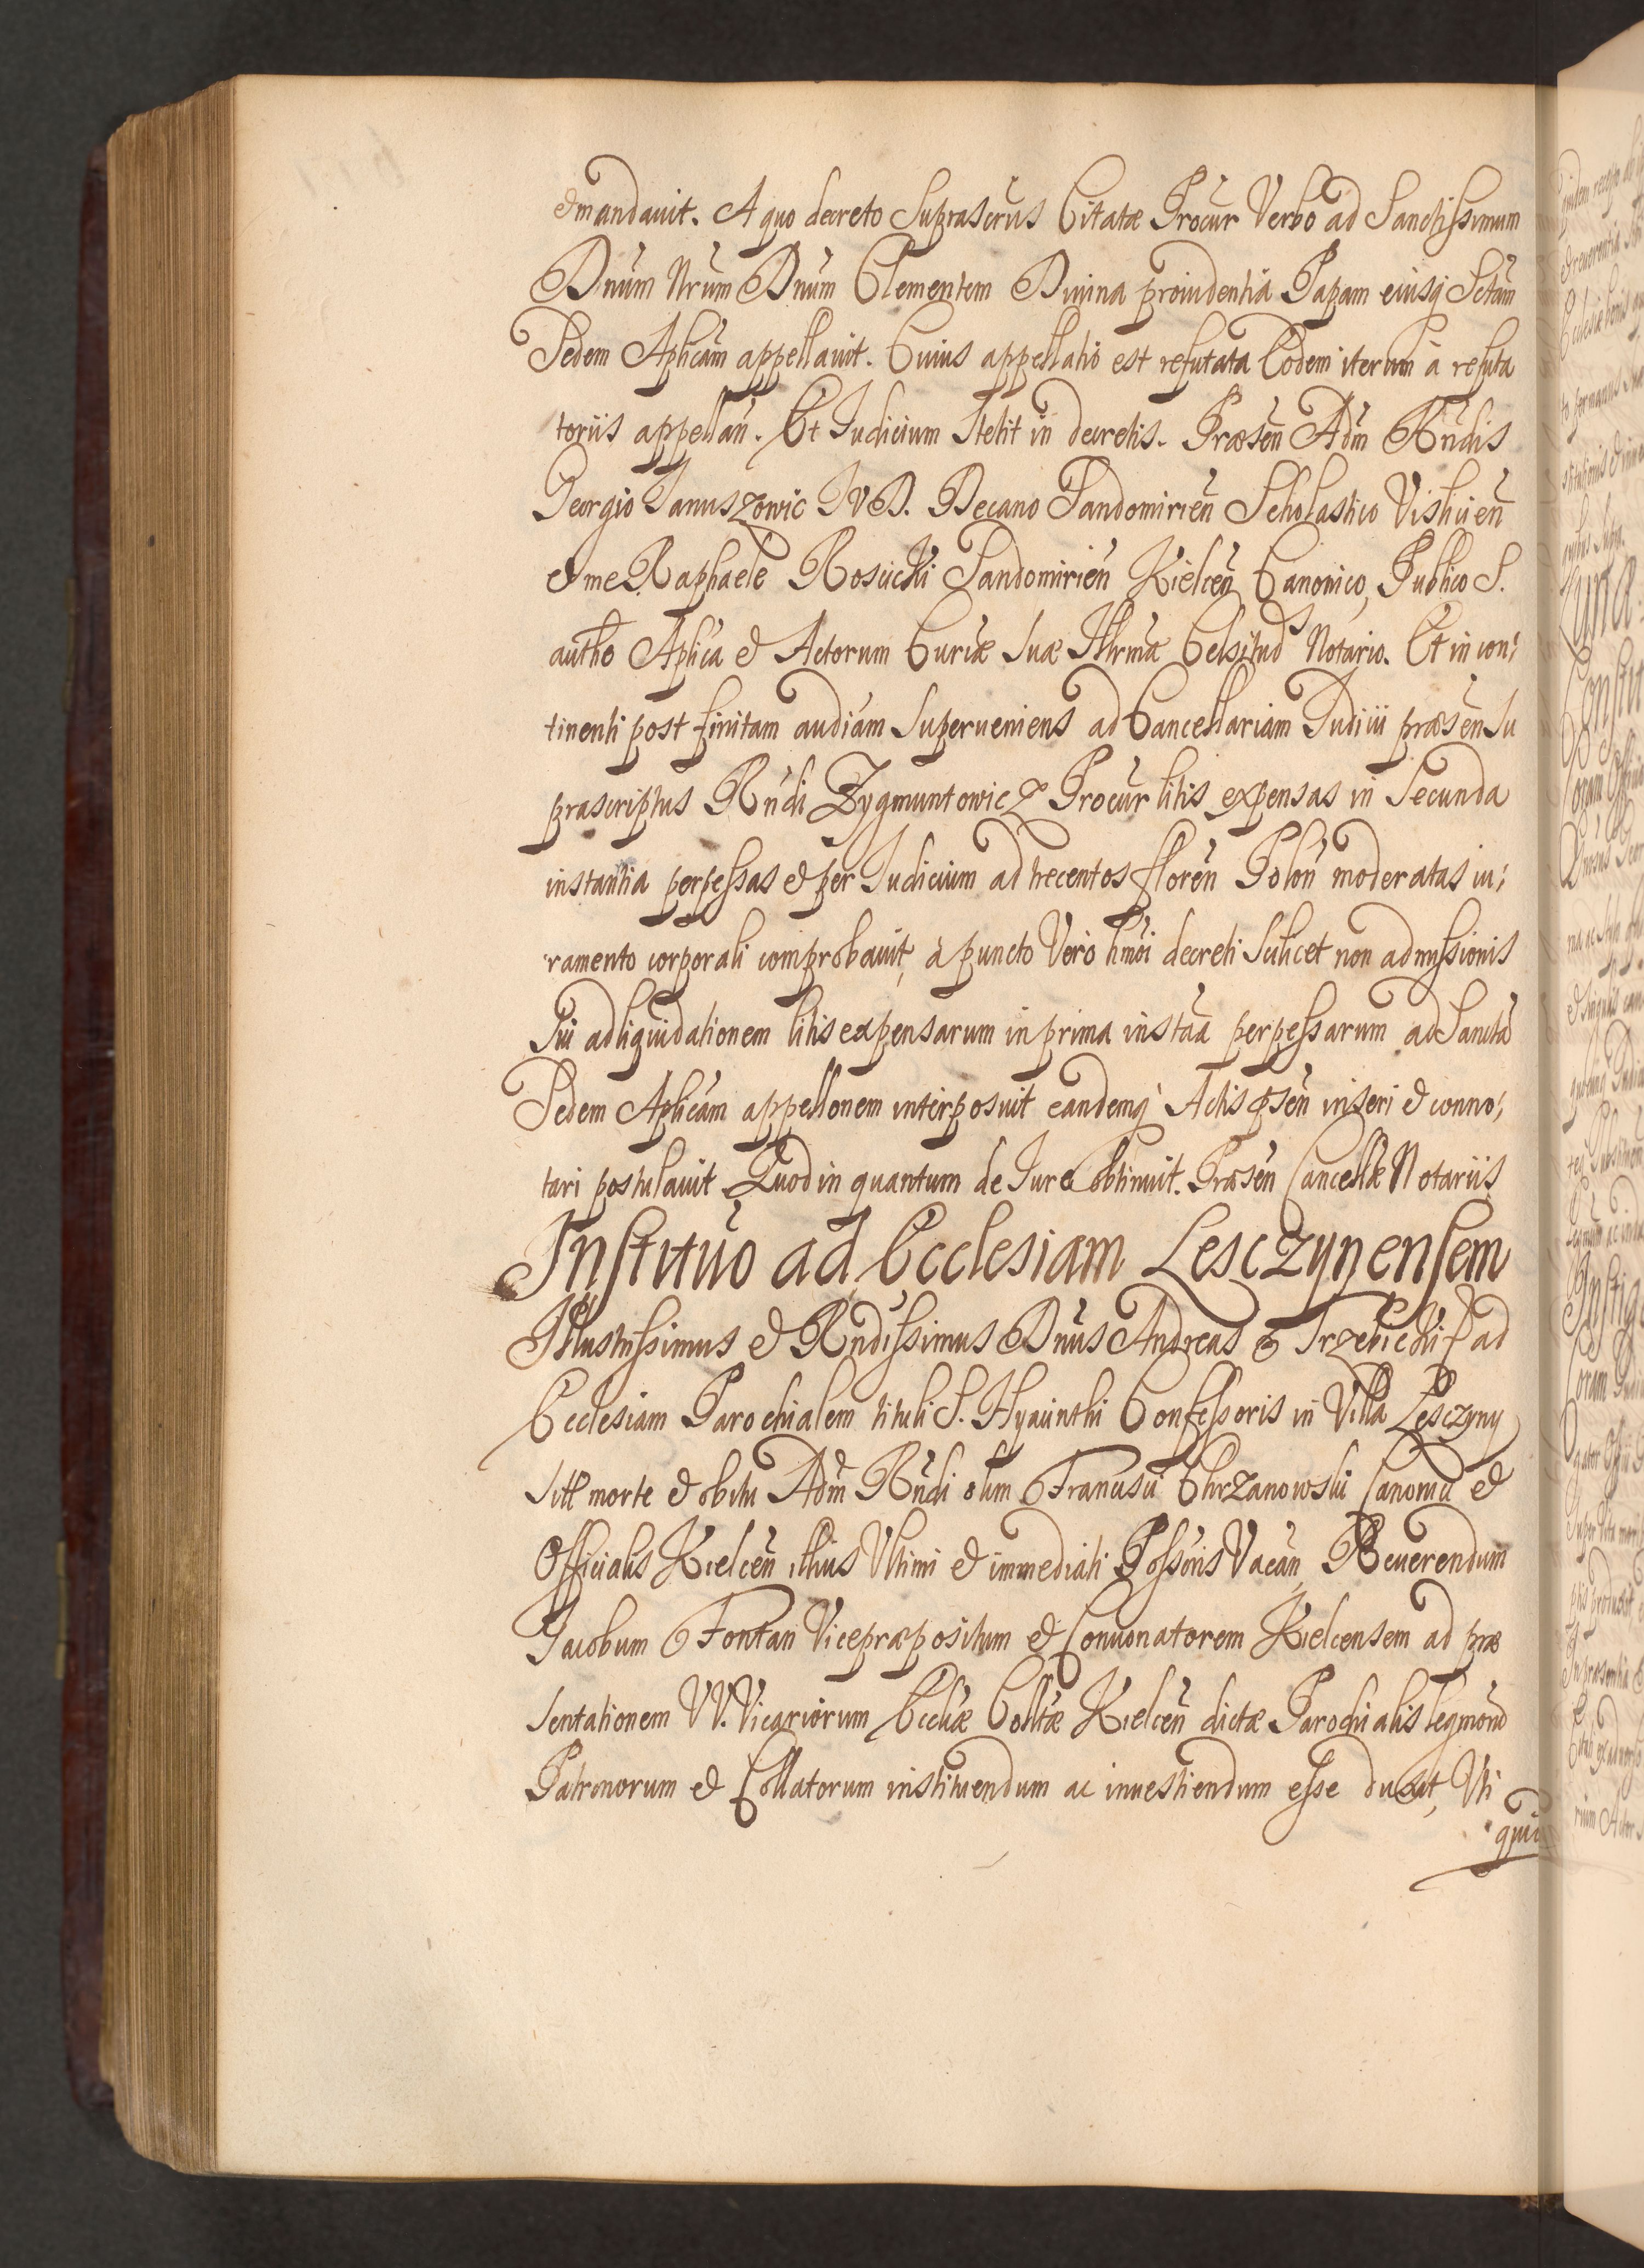 & mandauit. A quo decreto suprascrus Citatæ Procur Verbo ad Sanctissimum
Dnum Nrum Dnum Clementem Diuina prouidentia Papam eiusq Sctam
Sedem Aplicam appellauit. Cuius appellatio est refutata Eodem iterum à refuta
toriis appellan. Et Iudicium stetit in decretis. Præsen Adm Rndis
Georgio Ianuszowic IVD. Decano Sandomirien Scholastico Visliien
& me Raphaele Rosicki Sandomirien Kielcen Canonico, Publico S.
autho Aplica & Actorum Curiæ suæ Illrmæ Celsitud Notario. Et in con:
tinenti post finitam audiam superueniens ad Cancellariam Iudicii præsen su
prascriptus Rndi Zygmuntowicz Procur litis expensas in secunda
instantia perpessas & per Iudicium ad trecentos floren Polon moderatas iu:
ramento corporali comprobauit, à puncto Vero hmoi decreti scilicet non admissionis
sui ad liquidationem litis expensarum in prima instaa perpessarum ad Sanctã
Sedem Aplicam appellonem interposuit eandemq Actis psen inseri & conno:
tari postulauit Quod in quantum de Iure obtinuit. Præsen Cancellæ Notariis
Institutio ad Ecclesiam Lesczynensem
Illustrissimus & Rndissimus Dnus Andreas Trzebicki ad
Ecclesiam Parochialem tituli S. Hyacinthi Confessoris in Villa Lesczyny
sitt morte & obitu Adm Rndi olim Francisci Chrzanowski Canonici &
Officialis Kielcen illius Vltimi & immediati Possoris Vacan, Reuerendum
Iacobum Fontan Vicepræpositum & Concionatorem Kielcensem ad præ
sentationem VV. Vicariorum Eccliæ Colltæ Kielcen dictæ Parochialis legmorũ
Patronorum & Collatorum instituendum ac inuestiendum esse duxit, Vti